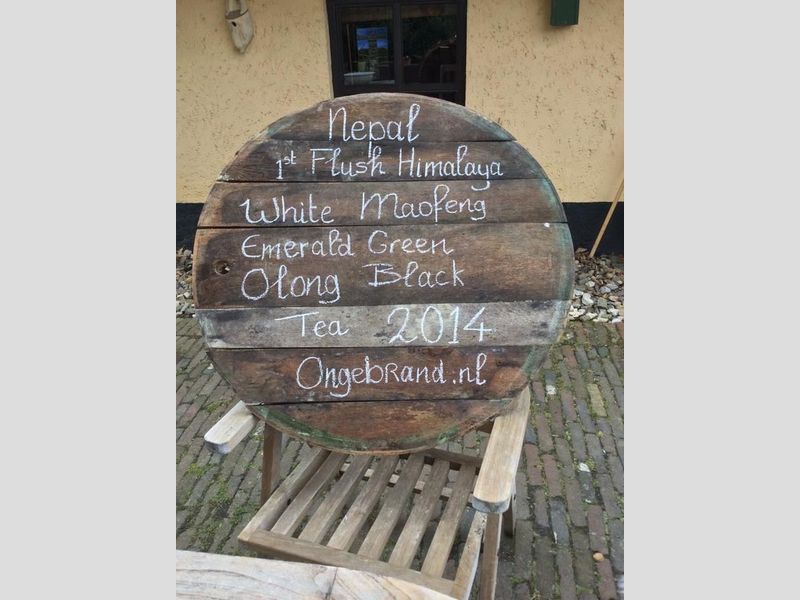 Nepal
1st Flush Himalaya
White Maofeng
Emerald Green
Olong Black
Tea 2014
Ongebrand.nl